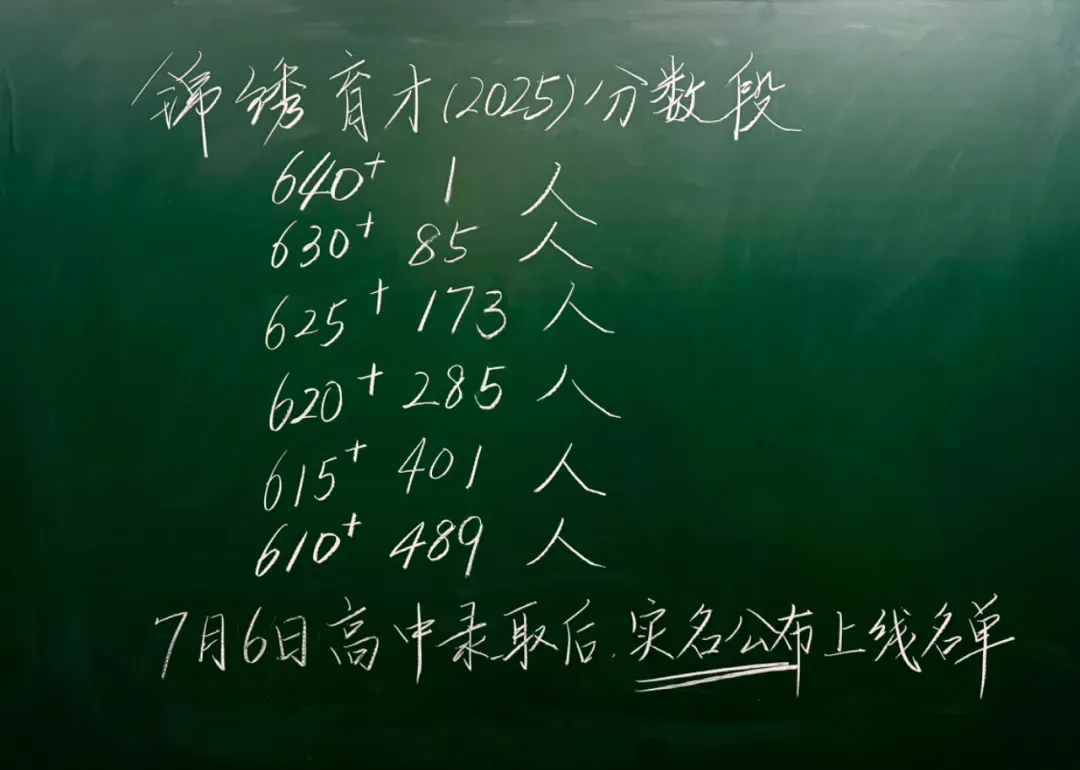 锦绣育才(2025)分数段
640+ 1 人
630+ 85 人
625+ 173 人
620+ 285 人
615+ 401 人
610+ 489 人
7月6日高中录取后.实名公布上线名单